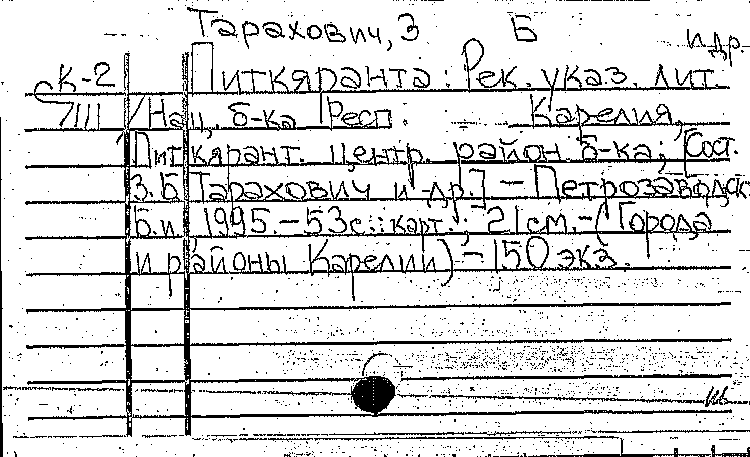 Тарахович, З Б и др.
К-2 Питкяранта: Рек. указ. лит.
7111 /Нац. б-ка Респ. Карелия,
Питкярант. центр. район б-ка; [Сост.
З.Б Тарахович и др.] - Петрозаводск
Б.и 1995.-53с.:карт.; 21см.-(Города
и районы Карелии)-150 экз.